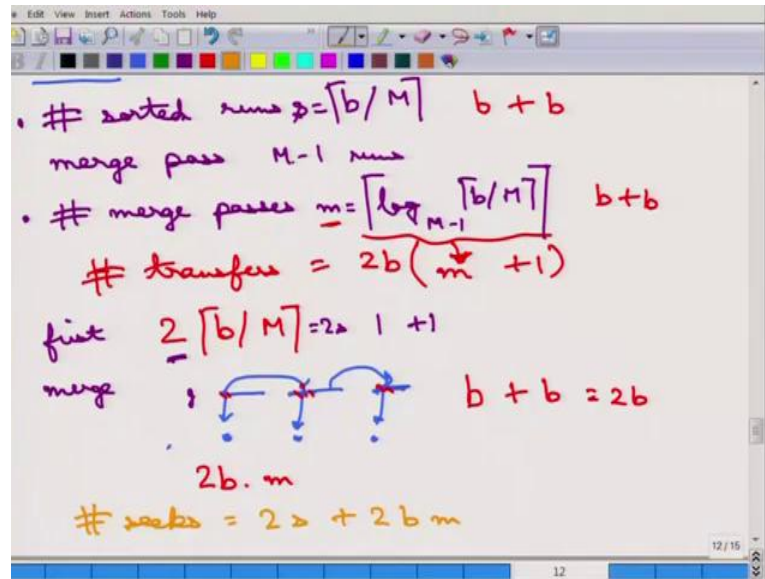 Edit View Insert Actions Tools Help
• # sorted runs s=⌈b/M⌉ b + b
merge pass M-1 runs
• # merge passes m=⌈log_{M-1} ⌈b/M⌉⌉ b+b
# transfers = 2b(m +1)
first 2⌈b/M⌉=2s 1 +1
merge b + b = 2b
2b.m
# seeks = 2s + 2bm
12/15
12